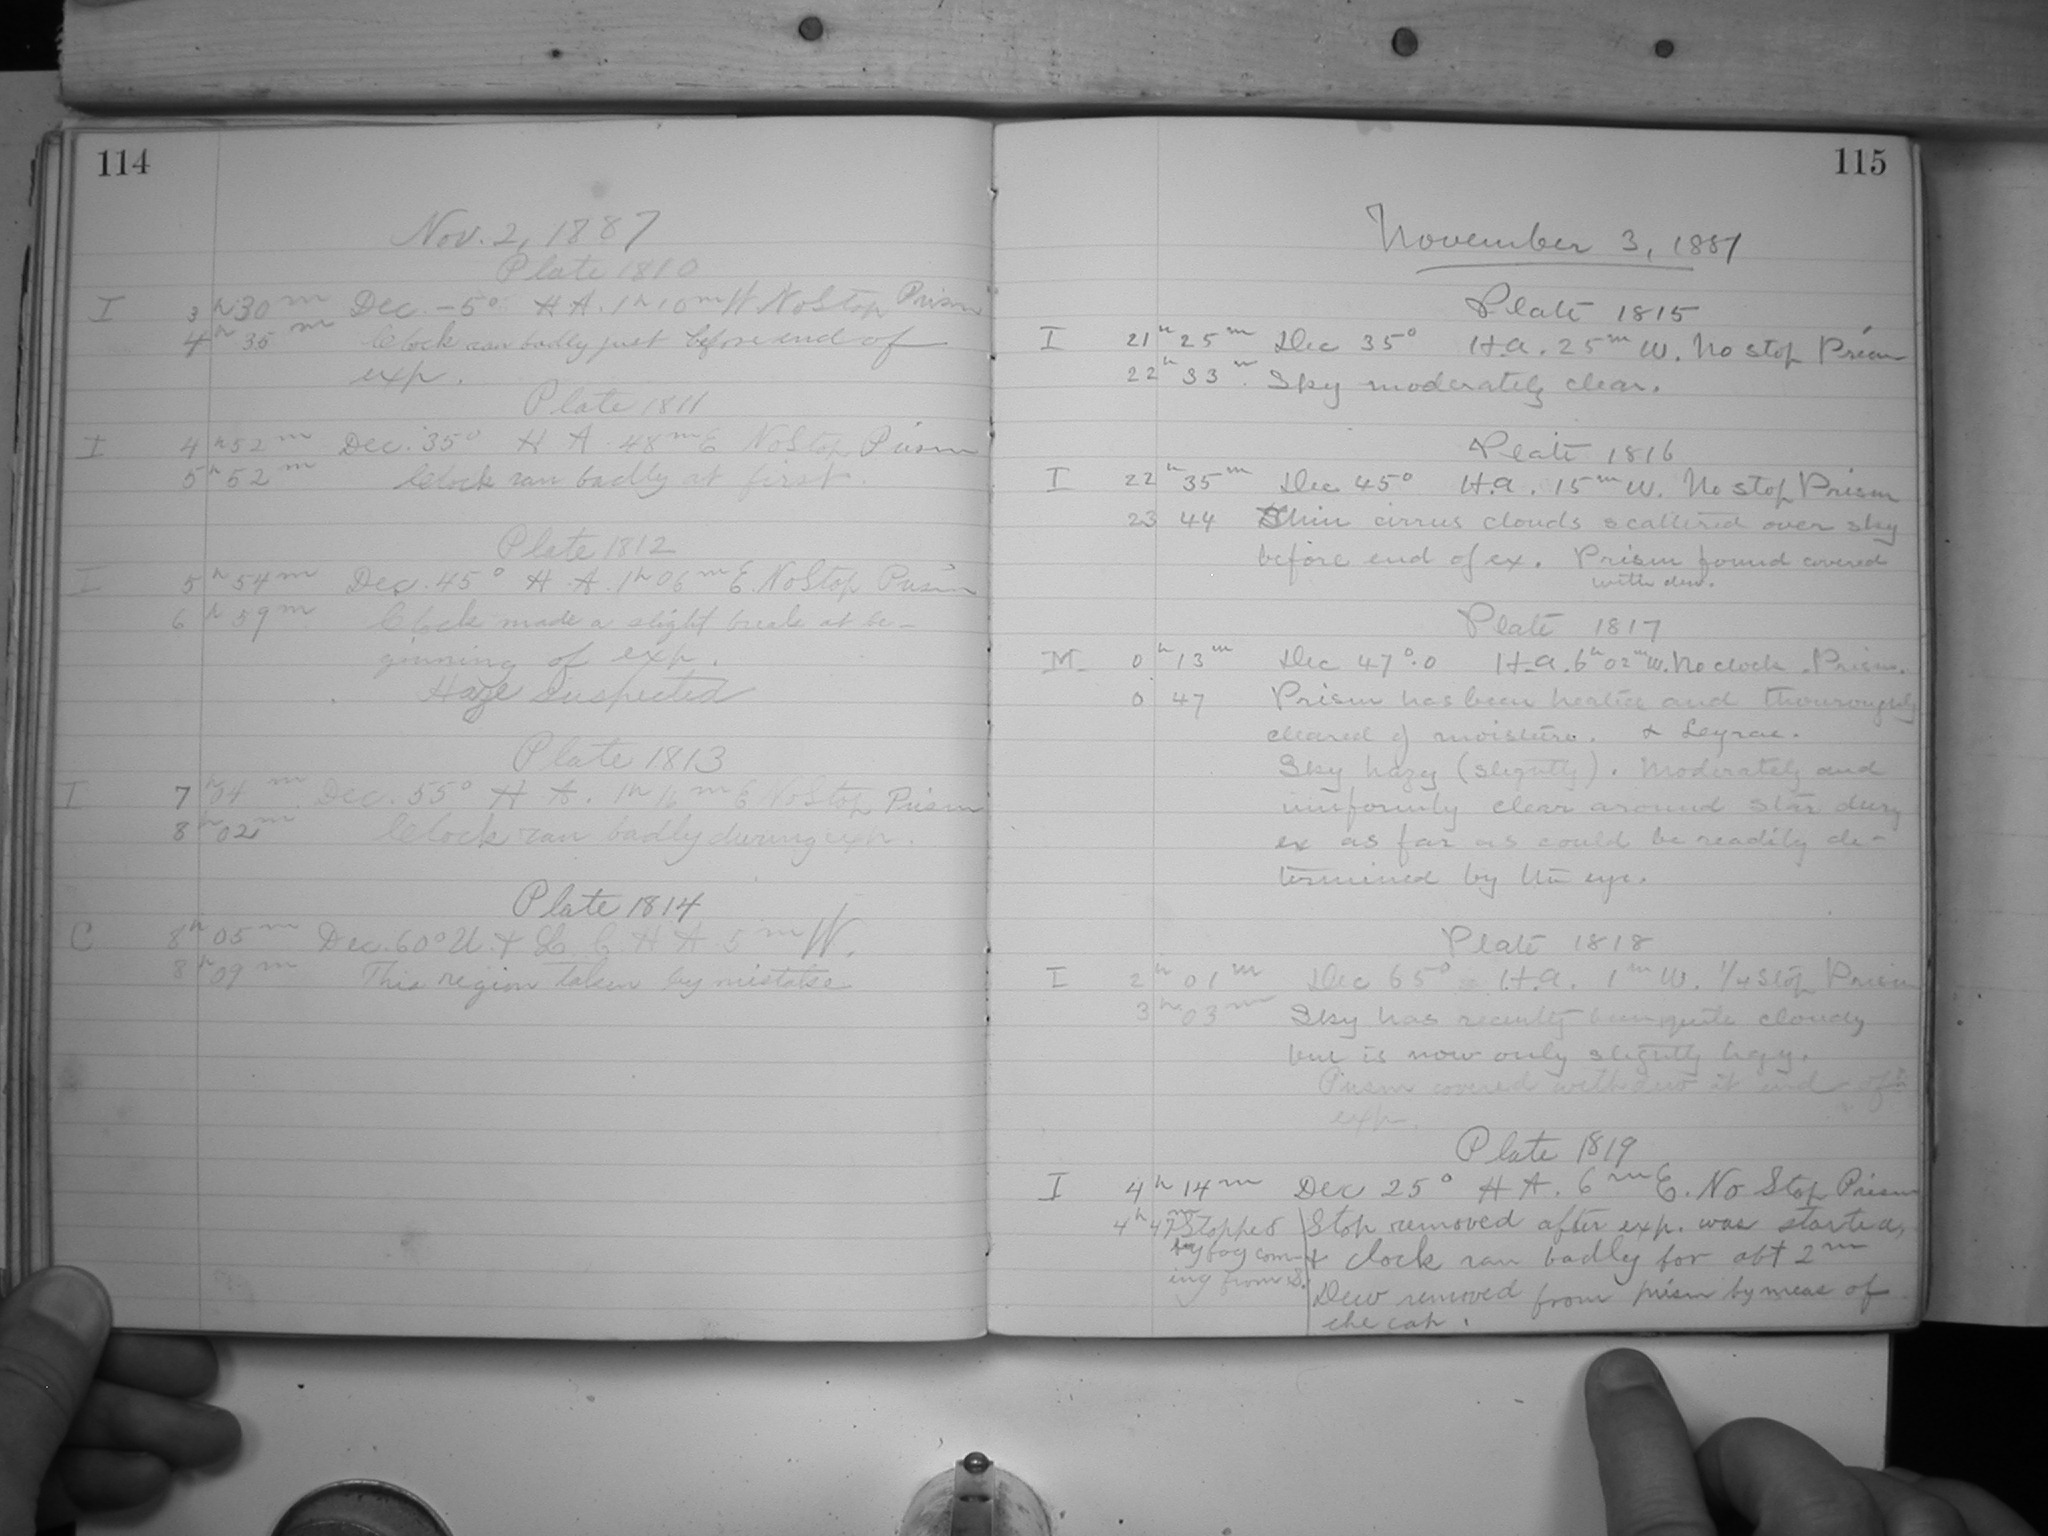 114
Nov. 2, 1887
Plate 1810
I 3h 30m Dec. -5° H A. 1h 10m W. No Stop Prism
4h 35m Clock ran badly just before end of
exp.
Plate 1811
I 4h 52m Dec. 35° H A. 48m E No Stop Prism
5h 52m Clock ran badly at first.
Plate 1812
I 5h 54m Dec. 45° H. A. 1h 06m E. No Stop Prism
6h 59m Clock made a slight break at be-
ginning of exp.
Haze suspected
Plate 1813
I 7h 04m Dec. 55° H A. 1h 16m E No Stop Prism
8h 02m Clock ran badly during exp.
Plate 1814
C 8h 05m Dec. 60° U. + L. C. H A 5m W.
8h 09m This region taken by mistake
115
November 3, 1887
Plate 1815
I 21h 25m Dec 35° H.a. 25m W. No stop Prism
22h 33m. Sky moderately clear.
Plate 1816
I 22h 35m Dec 45° H.a. 15m W. No stop Prism
23 44 Thin cirrus clouds scattered over sky
before end of ex. Prism found covered
with dew.
Plate 1817
M. 0h 13m Dec 47°.0 H.a. 6h 02m W. No clock. Prism.
0 47 Prism has been heated and thouroughly
cleared of moisture.
Sky hazy (slightly). Moderately and
uniformly clear around star during
ex as far as could be readily de-
termined by the eye.
Plate 1818
I 2h 01m Dec 65° H.a. 1m W. 1/4 stop Prism
3h 03m Sky has recently been quite cloudy
but is now only slightly hazy.
Prism covered with dew at end of
exp.
Plate 1819
I 4h 14m Dec 25° H A. 6m E. No Stop Prism
4h 47m Stopped Stop removed after exp. was started,
by fog com- + clock ran badly for abt 2m
ing from S. Dew removed from prism by meas of
the cap.